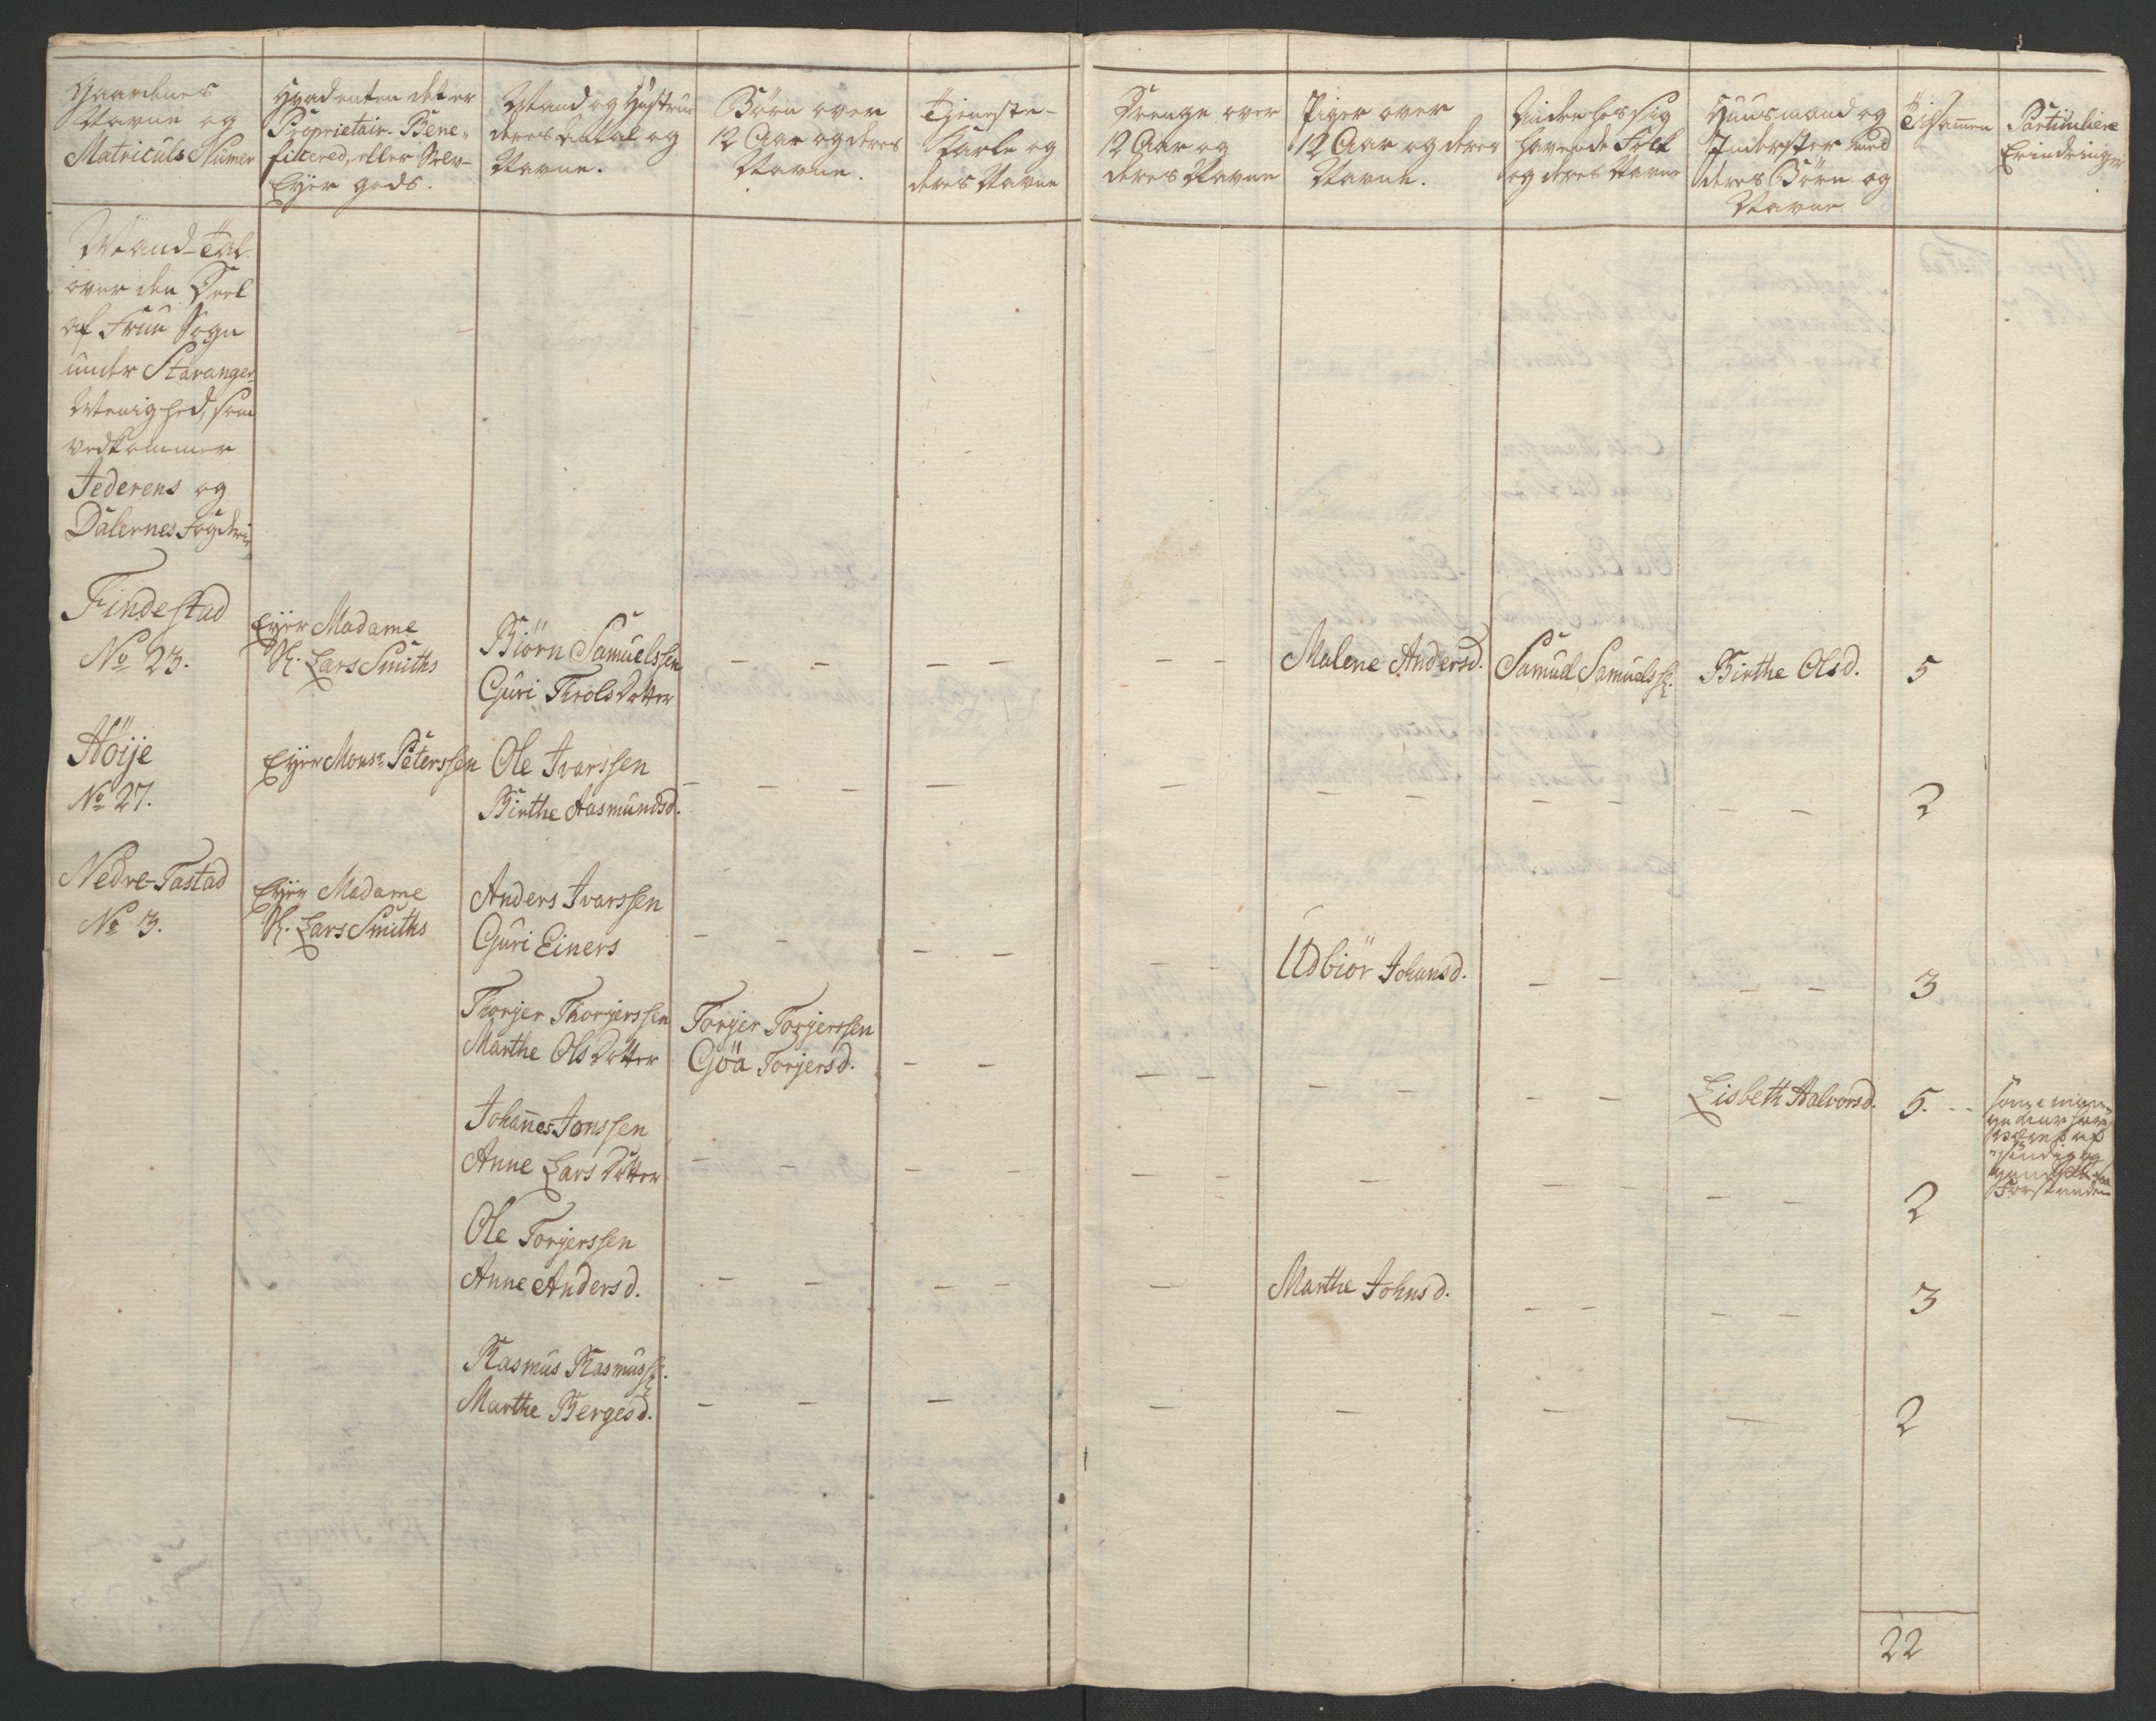 Gaardenes
Navne og
Matriculs Numer
Hvadenten det er
Proprietair- Bene-
ficered, eller Selv-
Eyer gods.
Mand og Hustrue
deres Antal og
Navne.
Börn over
12 Aar og deres
Navne.
Tieneste-
Karle og
deres Navne
Drenge over
12 Aar og
deres Navne
Piger over
12 Aar og deres
Navne.
Inden hos sig
havende Folk
og deres Navne
Huusmænd og
Inderster med
deres Börn og
Navne
Tilsamen
Particuliere
Erindringer
Mand-Tal
over den Deel
af Frue Sogn
under Stavanger
Menighed, som
vedkommer
Jederens og
Dalernes Fogderie
Findestad
No 23.
Eyer Madame
Sl. Lars Smiths
Biörn Samuelssen
Guri Throls Dotter
- - - - - -
Malene Andersd.
Samuel Samuelss:
Birthe Olsd.
5
Höije
No 27.
Eyer Monsr Peterssen
Ole Ivarssen
Birthe Aasmundsd.
- - - - - - - - - - -
2
Nedre-Tastad
No 3.
Eyer Madame
Sl. Lars Smiths
Anders Ivarssen
Guri Einers
- - - - - -
Udbiör Johansd.
- - - -
3
Thorjer Thorjerssen
Marthe Ols Dotter
Torjer Torjerssen
Göa Torjersd.
- - - - - - - -
Lisbeth Halvorsd.
5. - -
Johanes Jonssen
Anne Lars Dotter
- - - - - - - - - - -
2
Ole Torjerssen
Anne Andersd.
- - - - -
Marthe Johnsd.
- - - -
3
Rasmus Rasmuss:
Marthe Bergesd.
- - - - - - -
2
22